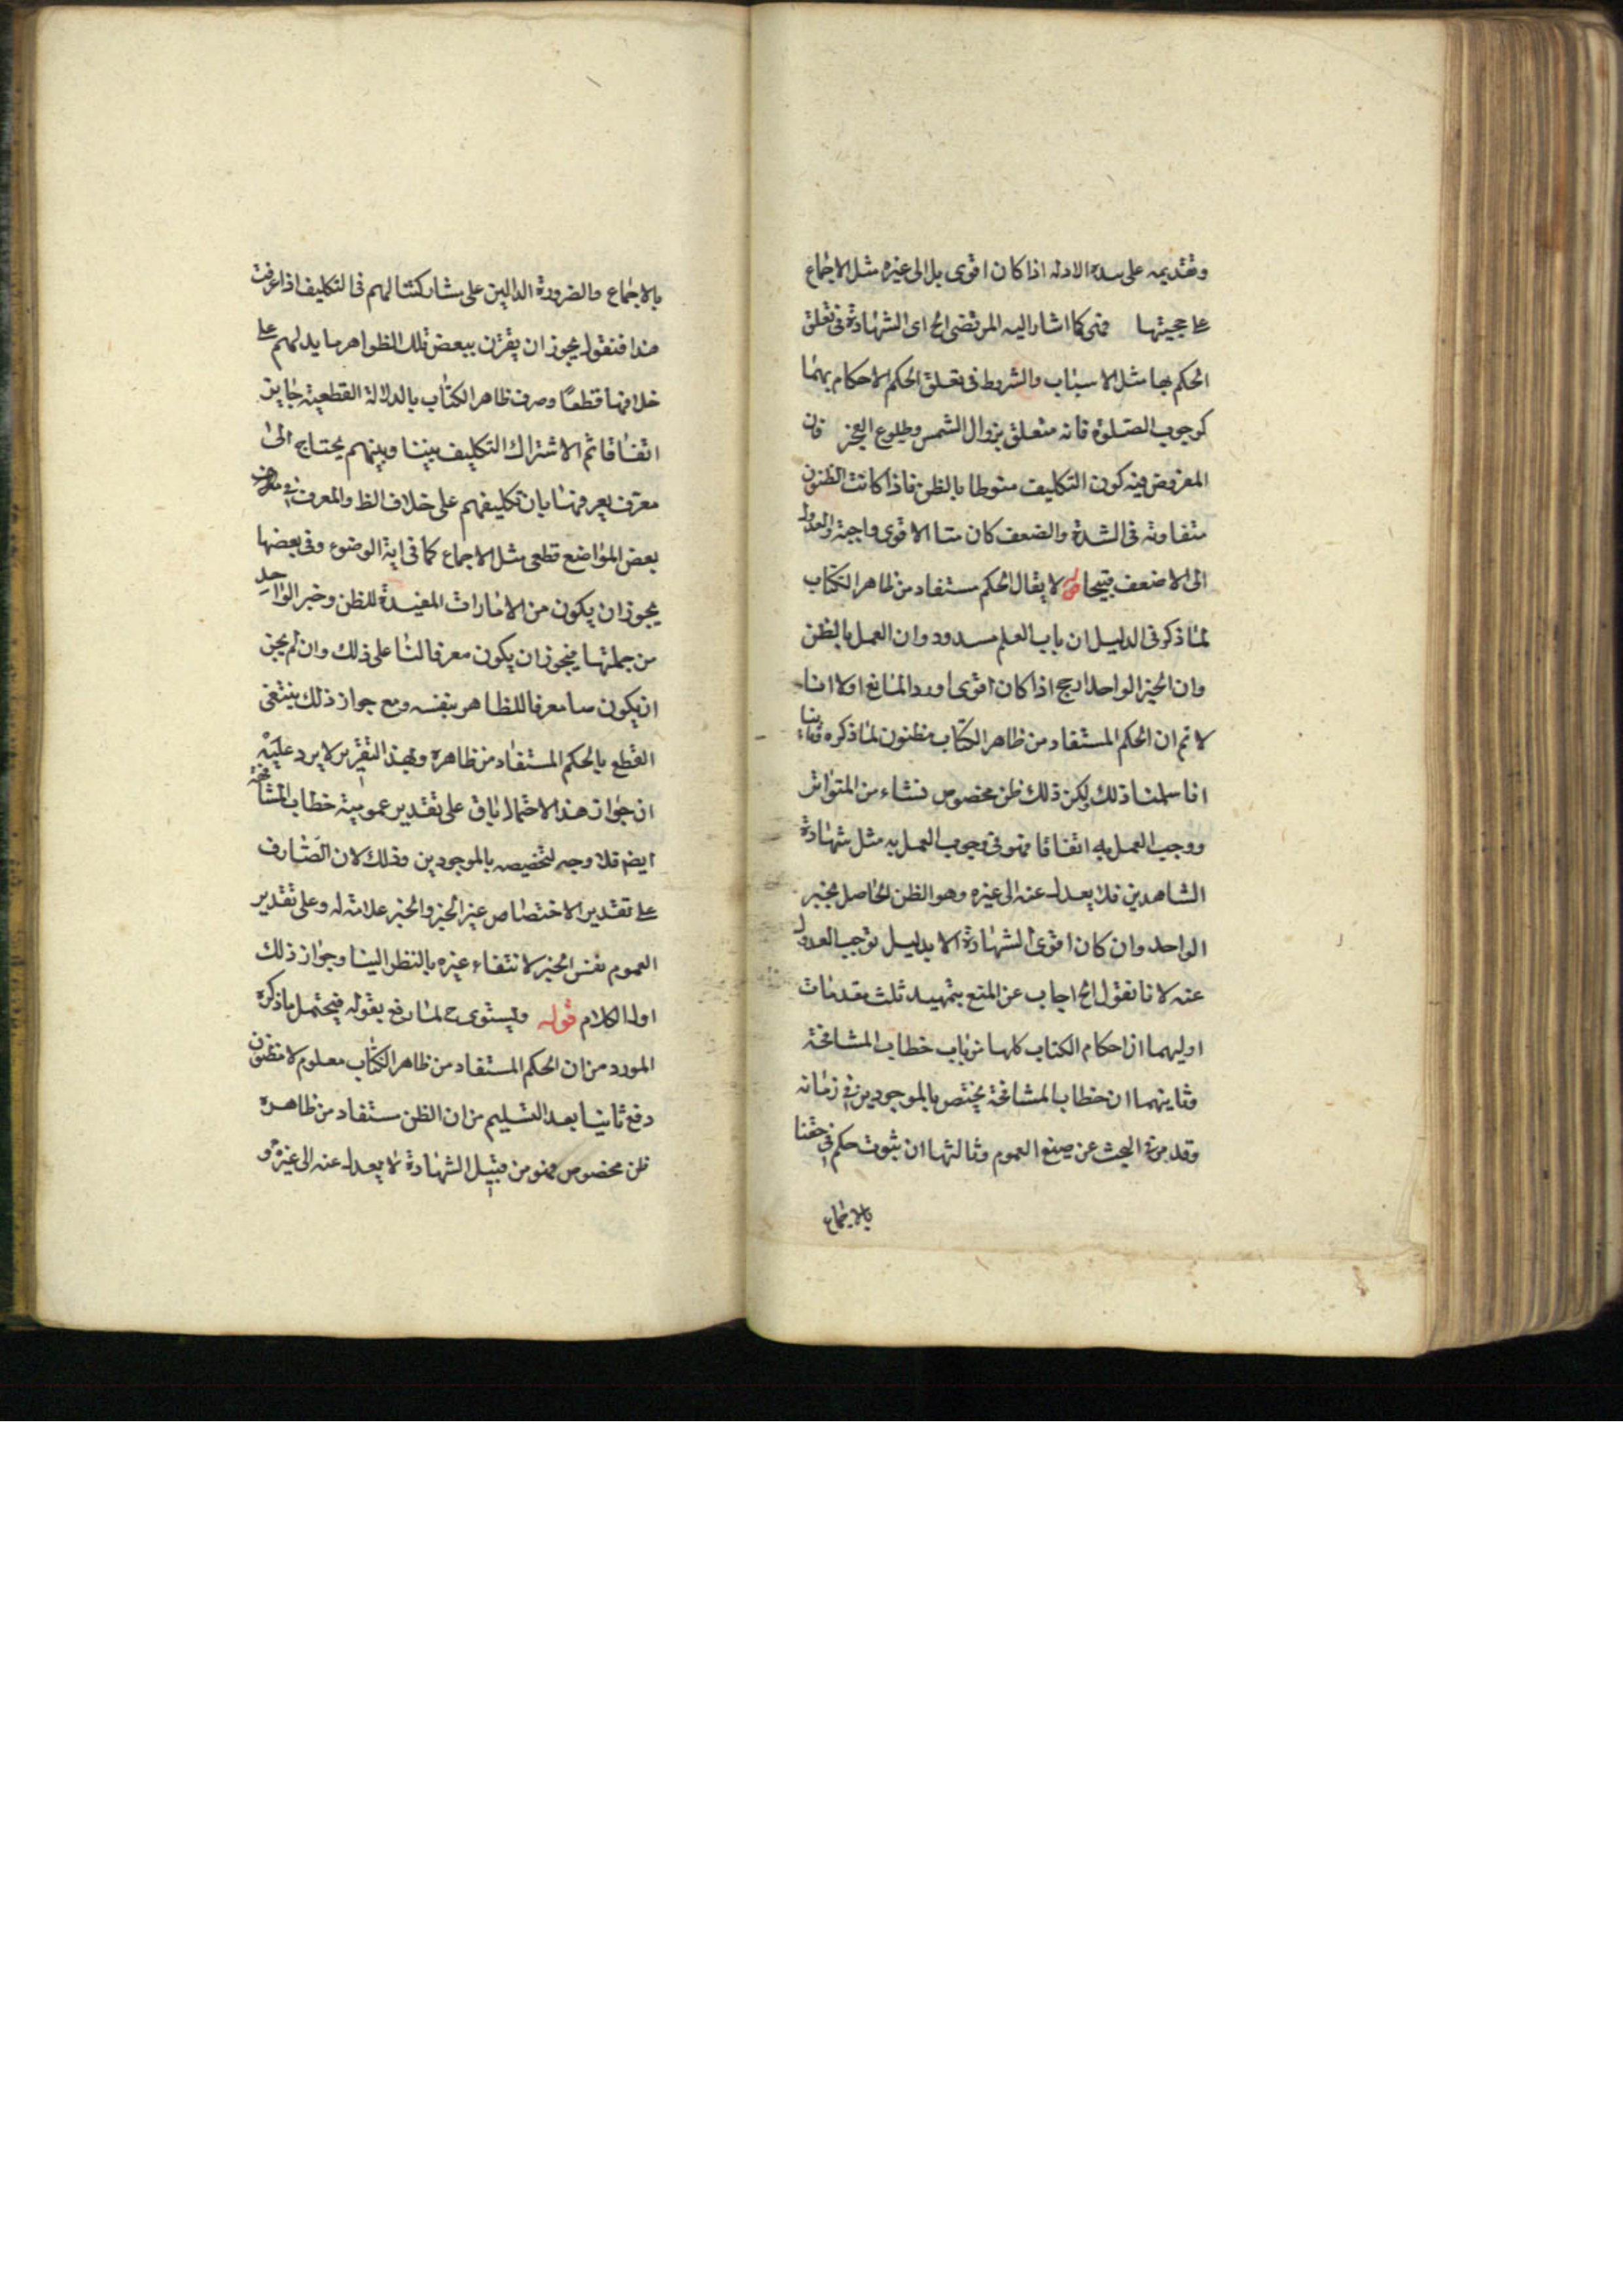 وتقديمه على هذه الادله اذا كان اقوى بل الى غيره مثل الاجماع
على حجيتها فهى كما اشار اليه المرتضى الخ اى الشهادة فى تعلق
الحكم بها مثل الاسباب والشروط فى تعلق الحكم الاحكام بهما
كوجوب الصلوة فانه متعلق بزوال الشمس وطلوع الفجر فان
المفروض فيه كون التكليف منوطا بالظن فاذا كانت الظنون
متفاوتة فى الشدة والضعف كان الاقوى واجبة والعدول
الى الاضعف قبيحا لا يقال الحكم مستفاد من ظاهر الكتاب
لما ذكر فى الدليل ان باب العلم مسدود وان العمل بالظن
وان الخبر الواحد ارجح اذا كان اقوى اورد المانع اولا انا
لا نم ان الحكم المستفاد من ظاهر الكتاب مظنون لما ذكره
انا سلمنا ذلك لكن ذلك ظن مخصوص نشاء من المتواتر
ووجب العمل به اتفاقا فهو فى وجوب العمل به مثل شهادة
الشاهدين فلا يعدل عنه الى غيره وهو الظن الحاصل بخبر
الواحد وان كان اقوى الشهادة الا بدليل يوجب العدول
عنه لانا نقول الخ اجاب عن المنع بتمهيد ثلث مقدمات
اوليهما ان احكام الكتاب كلها من باب خطاب المشافهة
وثانيهما ان خطاب المشافهة يختص بالموجودين فى زمانه
وقد مر فى البحث عن صيغ العموم وثالثها ان ثبوت حكم فى حقنا
بالاجماع
بالاجماع والضرورة الدالين على مشاركتنا لهم فى التكليف اذا عرفت
هذا فنقول يجوز ان يقترن ببعض تلك الظواهر ما يدلهم على
خلافها قطعا وصرف ظاهر الكتاب بالدلالة القطعية جايز
اتفاقا ثم الاشتراك التكليف بيننا وبينهم يحتاج الى
معرف يعرفنا بان تكليفهم على خلاف الظ والمعرف فى
بعض المواضع قطعى مثل الاجماع كما فى اية الوضوء وفى بعضها
يجوز ان يكون من الامارات المفيدة للظن وخبر الواحد
من جملتها فيجوز ان يكون معرفا لنا على ذلك وان لم يجز
ان يكون صا معرفا للظاهر بنفسه ومع جواز ذلك ينتفى
القطع بالحكم المستفاد من ظاهره وبهذا التقرير لا يرد عليه
ان جواز هذا الاحتمال باق على تقدير عمومية خطاب المشافهة
ايضا فلا وجه لتخصيصه بالموجودين وذلك لان الصارف
على تقدير الاختصاص غير الخبر والخبر علامة له وعلى تقدير
العموم نفس الخبر لانتفاء غيره بالنظر الينا وجواز ذلك
اول الكلام قوله ويستوى ح لما رفع بقوله فيحتمل ما ذكره
المورد من ان الحكم المستفاد من ظاهر الكتاب معلوم لا مظنون
دفع ثانيا بعد التسليم من ان الظن مستفاد من ظاهره
ظن مخصوص فهو من قبيل الشهادة لا يعدل عنه الى غيره و